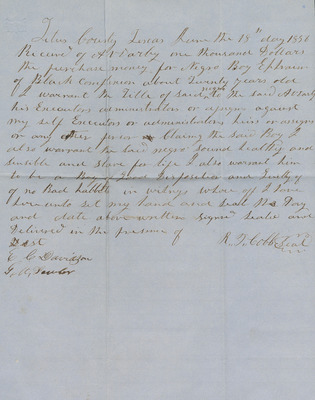 Titus County Texas June the 15th day 1856
Received of A Darby one Thousand Dollars
the purchase money for Negro Boy Ephram
of Black Complexion about Twenty years old
I warrant the Title of Said Negro to the said A Darby
his Executors administrators or asigns against
my self Executors or administrators heirs or assigns
or any other person Claing the said Boy I
also warrant the said negro Sound healthy and
sensible and slave for life I also warrant him
to be a Boy of Good disposition and Guilty
of no Bad habbits in witness whare of I have
here unto set my hand and seal the Day
and date above written Signed Seald and
Delivered in the presence of
R. F. Cobb Seal
Test
E C Davidson